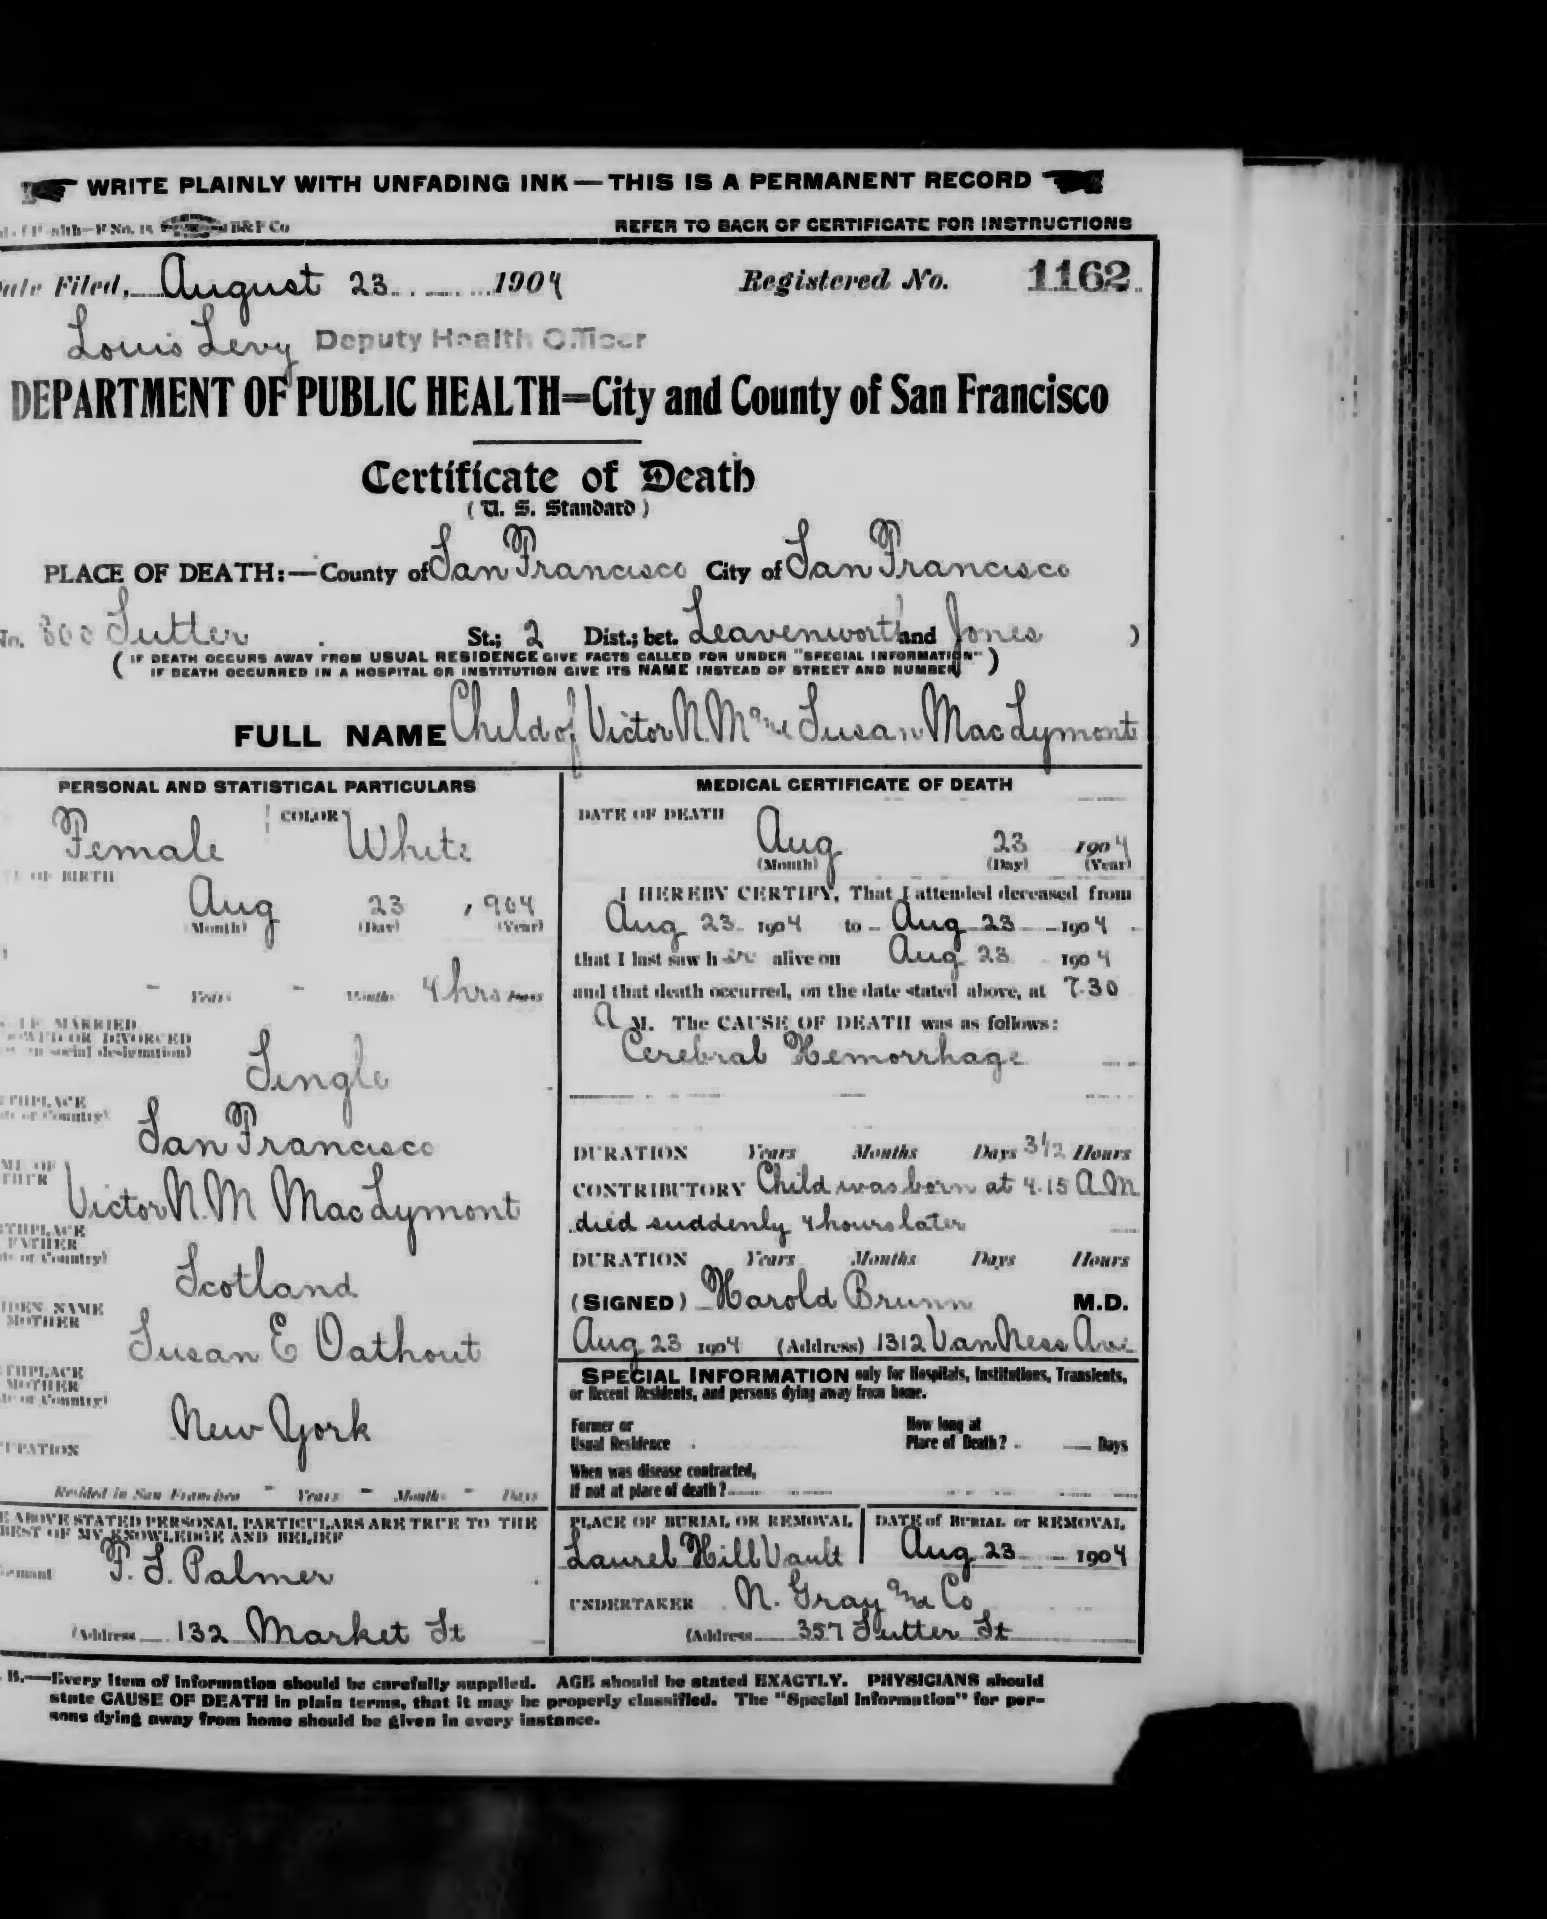 WRITE PLAINLY WITH UNFADING INK — THIS IS A PERMANENT RECORD
B&P Co REFER TO BACK OF CERTIFICATE FOR INSTRUCTIONS
Filed, August 23 1904 Registered No. 1162
Louis Levy Deputy Health Officer
DEPARTMENT OF PUBLIC HEALTH=City and County of San Francisco
Certificate of Death
(U. S. Standard)
PLACE OF DEATH:—County of San Francisco City of San Francisco
No. 800 Sutter St.; 2 Dist.; bet. Leavenworth and Jones )
( IF DEATH OCCURS AWAY FROM USUAL RESIDENCE GIVE FACTS CALLED FOR UNDER "SPECIAL INFORMATION" )
IF DEATH OCCURRED IN A HOSPITAL OR INSTITUTION GIVE ITS NAME INSTEAD OF STREET AND NUMBER
FULL NAME Child of Victor N. M and Susan MacLymont
PERSONAL AND STATISTICAL PARTICULARS
Female COLOR White
OF BIRTH
Aug 23 , 904
(Month) (Day) (Year)
- Years - Months 4 hrs Days
IF MARRIED
OR DIVORCED
social designation)
Single
or Country)
San Francisco
OF
Victor N. M MacLymont
FATHER
or Country)
Scotland
NAME
MOTHER
Susan E Oathout
MOTHER
or Country)
New York
Resided in San Francisco - Years - Months - Days
ABOVE STATED PERSONAL PARTICULARS ARE TRUE TO THE
BEST OF MY KNOWLEDGE AND BELIEF
F. S. Palmer
(Address 132 Market St
MEDICAL CERTIFICATE OF DEATH
DATE OF DEATH
Aug 23 1904
(Month) (Day) (Year)
I HEREBY CERTIFY, That I attended deceased from
Aug 23 1904 to Aug 23 1904
that I last saw her alive on Aug 23 1904
and that death occurred, on the date stated above, at 7.30
A M. The CAUSE OF DEATH was as follows:
Cerebral Hemorrhage
DURATION Years Months Days 3 1/2 Hours
CONTRIBUTORY Child was born at 4.15 A.M
died suddenly 4 hours later
DURATION Years Months Days Hours
(SIGNED) Harold Brunn M.D.
Aug 23 1904 (Address) 1312 Van Ness Ave
SPECIAL INFORMATION only for Hospitals, Institutions, Transients,
or Recent Residents, and persons dying away from home.
Former or How long at
Usual Residence Place of Death? Days
When was disease contracted,
If not at place of death?
PLACE OF BURIAL OR REMOVAL DATE of BURIAL or REMOVAL
Laurel Hill Vault Aug 23 1904
UNDERTAKER N. Gray and Co
(Address 357 Sutter St
B.—Every item of information should be carefully supplied. AGE should be stated EXACTLY. PHYSICIANS should
state CAUSE OF DEATH in plain terms, that it may be properly classified. The "Special Information" for per-
sons dying away from home should be given in every instance.